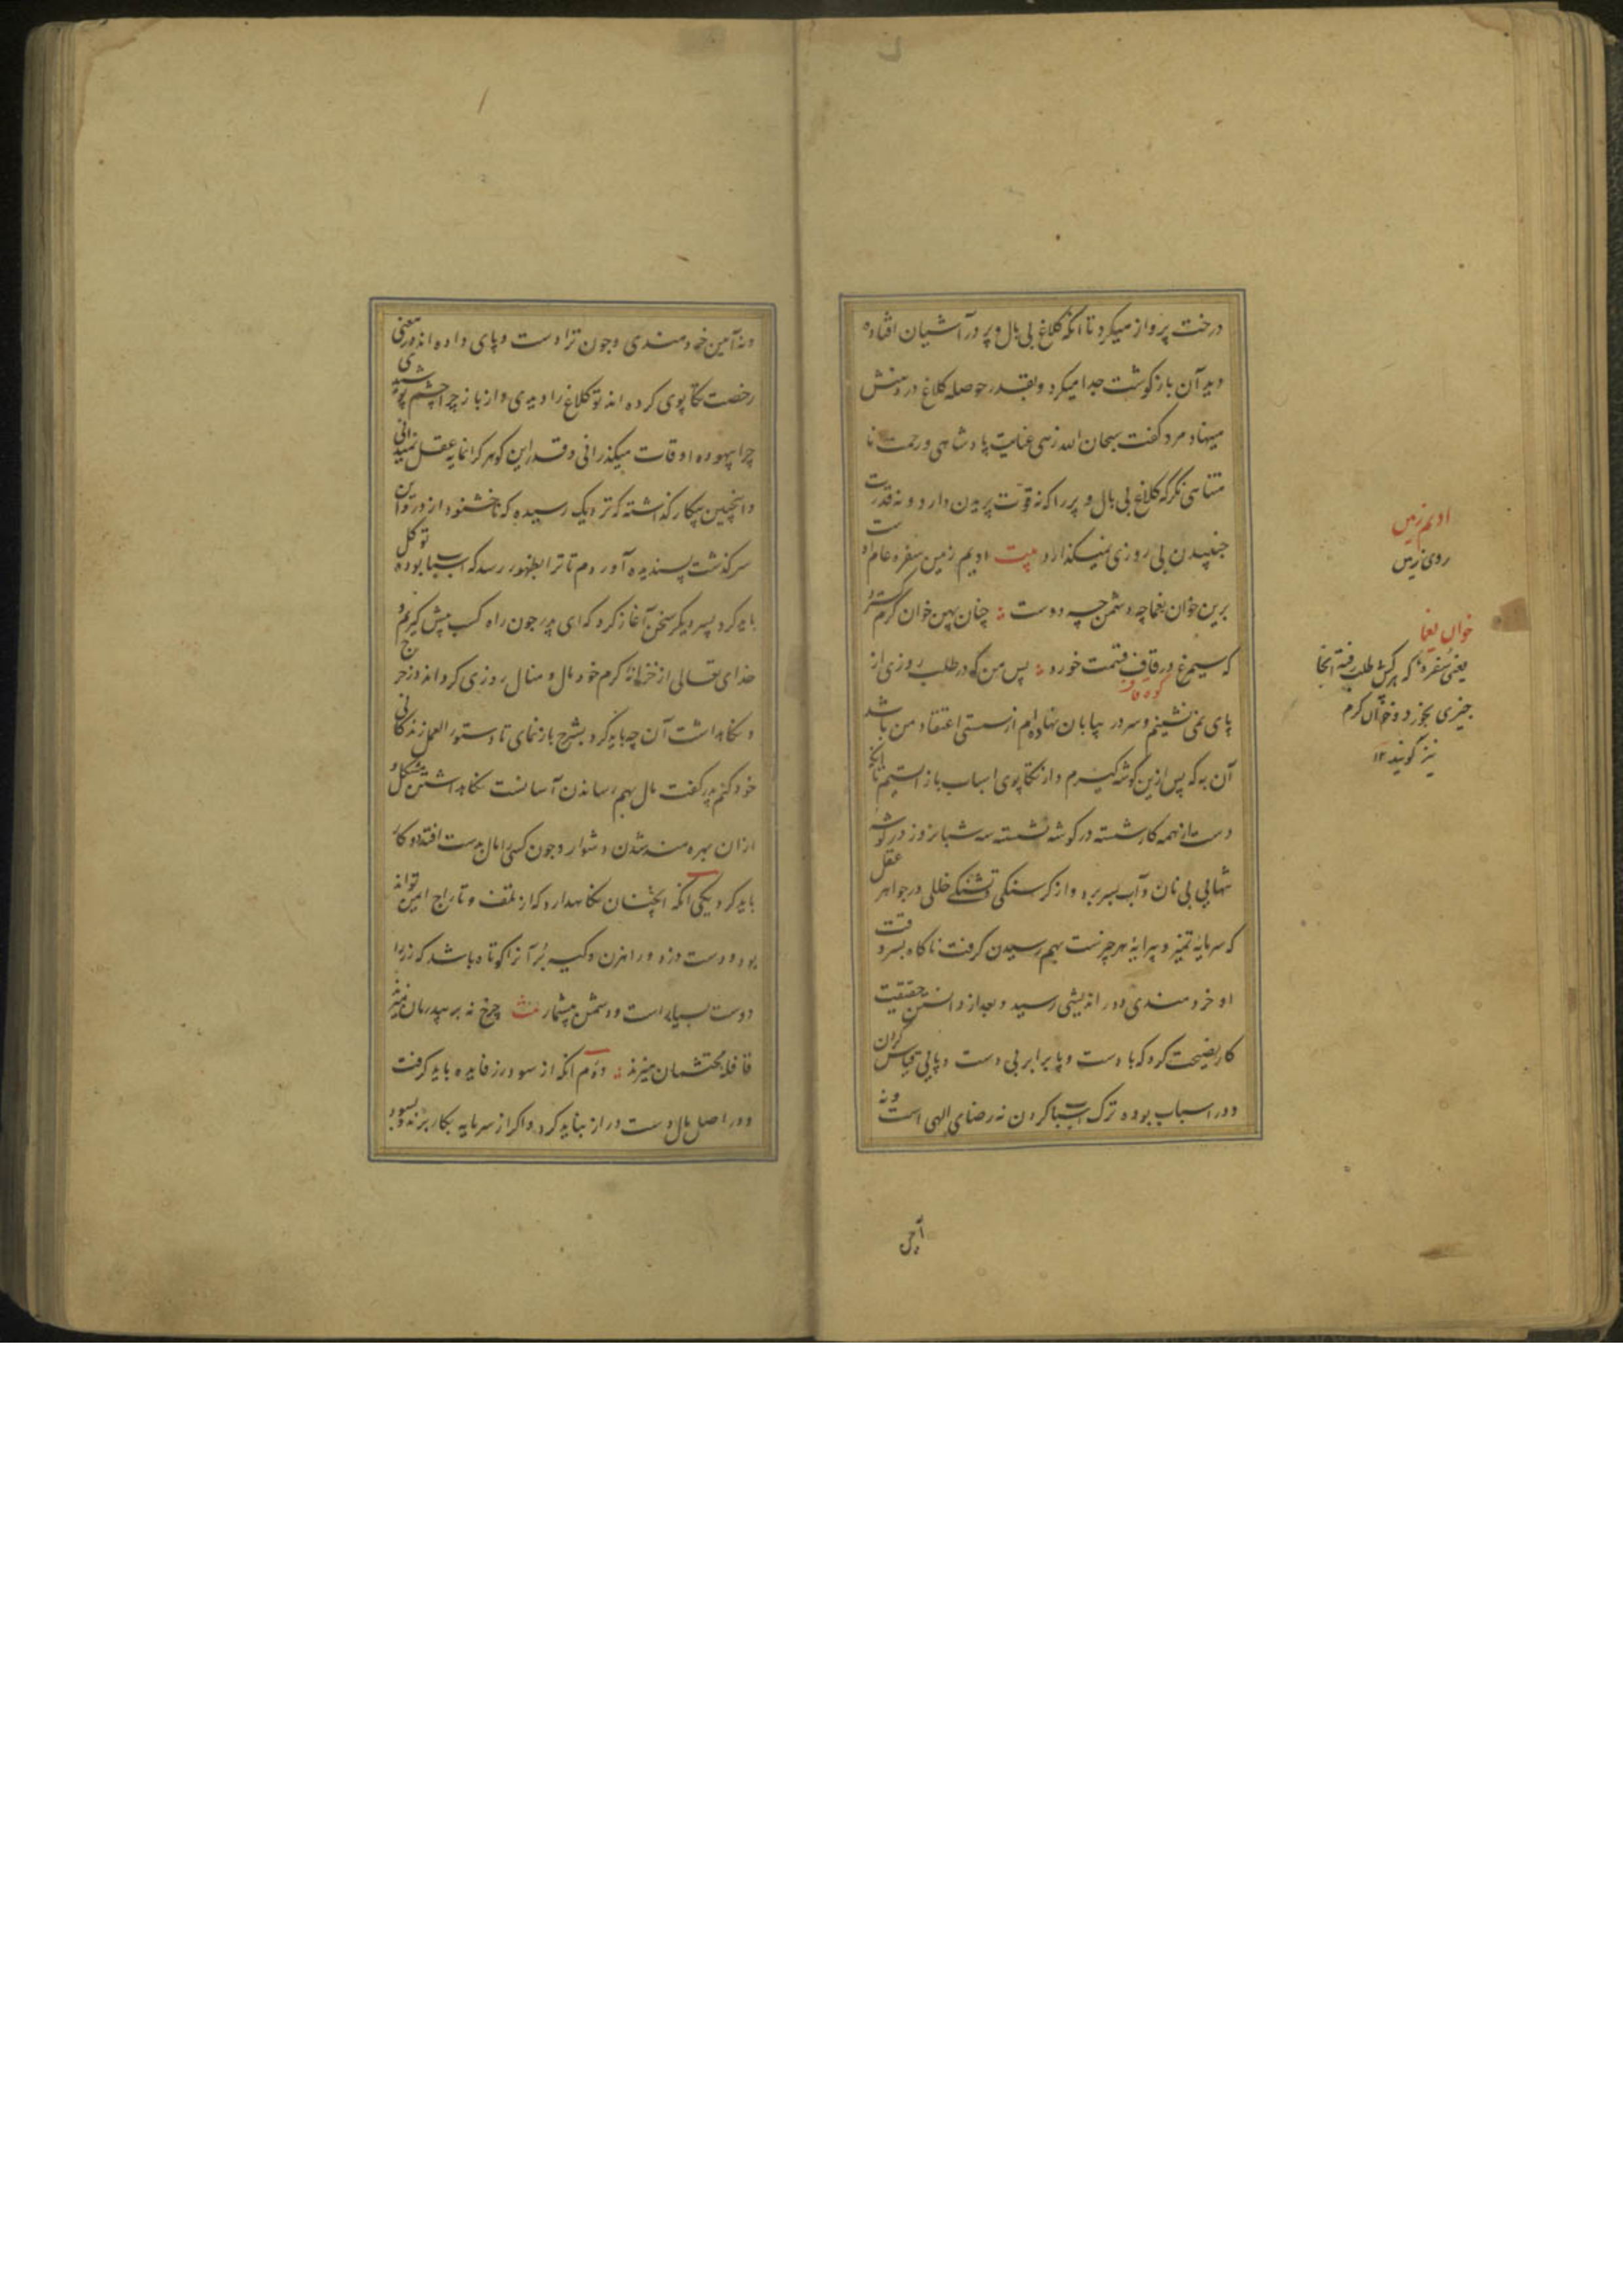 درخت پرواز میکرد تا انکه کلاغ بی بال و پر در آشیان افتاده
دید آن باز کوشت جدا میکرد و بقدر حوصله کلاغ در دهنش
میهناد مرد کفت سبحان الله زهی عنایت پادشاهی و رحمت نا
متناهی نکر که کلاغ بی بال و پر را که نه قوت پریدن دارد و نه قدرت
جنبیدن بی روزی نمیکذارد بیت ادیم زمین سفره عام اوست
برین خوان یغما چه دشمن چه دوست چنان پهن خوان کرم کسترد
که سیمرغ در قاف قسمت خورد پس من که در طلب روزی از
کوه قاف
پای نمی نشینم و سر در بیابان نهاده ام از سستی اعتقاد من باشد
آن به که پس ازین کوشه کیرم و از تکاپوی اسباب باز ایستم تا انکه
دست از همه کار شسته در کوشه نشسته سه شبانروز در کوشه
تنهایی بی نان و آب بسر برد و از کرسنکی و تشنکی خللی در جواهر عقل
که سرمایه تمیز و پیرایه هر چیزست بهم رسیدن کرفت ناکاه بسر وقت
او خردمندی دور اندیشی رسید و بعد از دانستن حقیقت
کار نصیحت کرد که با دست و پا برابر بی دست و پایی قیاس کردن
و در اسباب بوده ترک اسباب کردن نه رضای الهی است و نه
آیین
ادیم زمین
روی زمین
خوان یغما
یعنی سفره که هرکس بی طلب رفته انجا
چیزی بخورد و خوان کرم
نیز کویند ۱۲
و نه آیین خردمندی و چون ترا دست و پای داده اند در معنی
رخصت تکاپوی کرده اند تو کلاغ را دیدی و از باز چرا چشم پوشیدی
چرا بیهوده اوقات میکذرانی و قدر این کوهر کرانمایه عقل نمیدانی
و اینچنین بیکار کذاشته که نزدیک رسیده که ناخشنود از تو رود این
سرکذشت پسندیده آوردم تا ترا بظهور رسد که با اسباب بوده توکل
باید کرد پسر دیکر سخن آغاز کرد که ای پدر چون راه کسب پیش کیریم و
خدای تعالی از خزانه کرم خود مال و منال روزی کرداند در خرج
و نکاهداشت آن چه باید کرد بشرح بازنمای تا دستور العمل زندکانی
خود کنم پدر کفت مال بهم رساندن آسانست نکاهداشتن مشکل و
ازان بهره مند شدن دشوار و چون کسی را مال بدست افتد دو کار
باید کرد یکی انکه آنچنان نکاهدارد که از تلف و تاراج امین تواند
بود و دست دزد و راهزن و کیسه بر آنرا کوتاه باشد که زر را
دوست بسیار است و دشمن بیشمار چرخ نه بر بیدرمان میزند
قافله محتشمان میزند دوم انکه از سود زر فایده باید کرفت
و در اصل مال دست دراز نباید کرد و اکر از سرمایه بکار برند و بسود